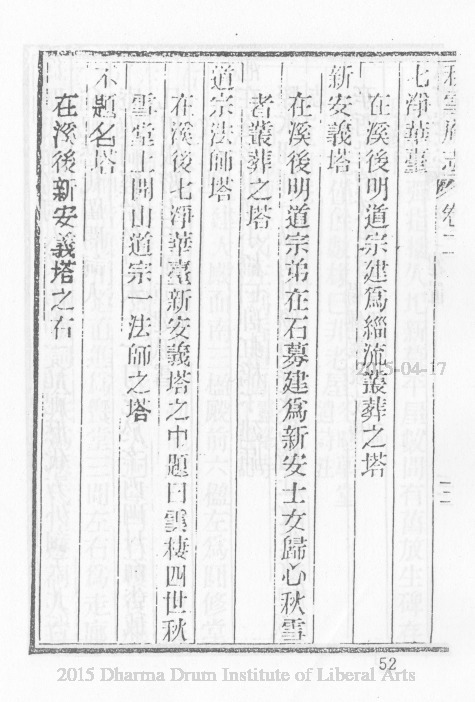 秋雪庵志 卷二
七淨華臺
在溪後明道宗建爲緇流叢葬之塔
新安義塔
在溪後明道宗弟在石募建爲新安士女歸心秋雪
者叢葬之塔
道宗法師塔
在溪後七淨華臺新安義塔之中題曰雲棲四世秋
雪堂上開山道宗一法師之塔
不題名塔
在溪後新安義塔之右
二
2015-04-17
52
2015 Dharma Drum Institute of Liberal Arts